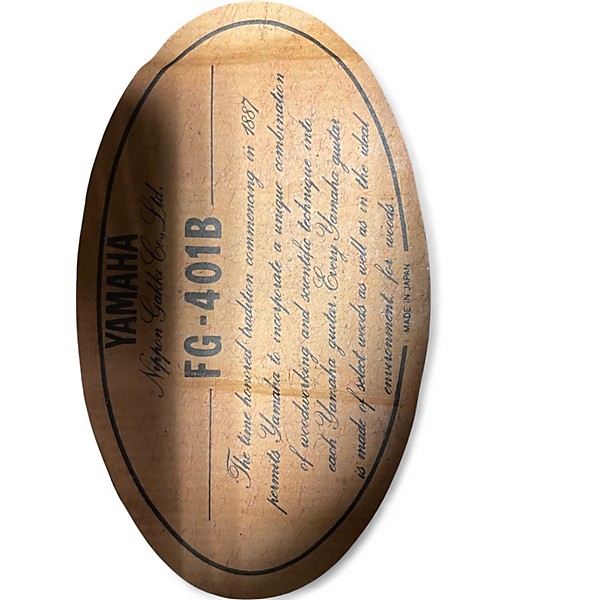 YAMAHA
Nippon Gakki Co., Ltd.
FG-401B
The time honored tradition commencing in 1887
permits Yamaha to incorporate a unique combination
of woodworking and scientific technique into
each Yamaha guitar. Every Yamaha guitar
is made of select woods as well as in the ideal
environment for woods
MADE IN JAPAN